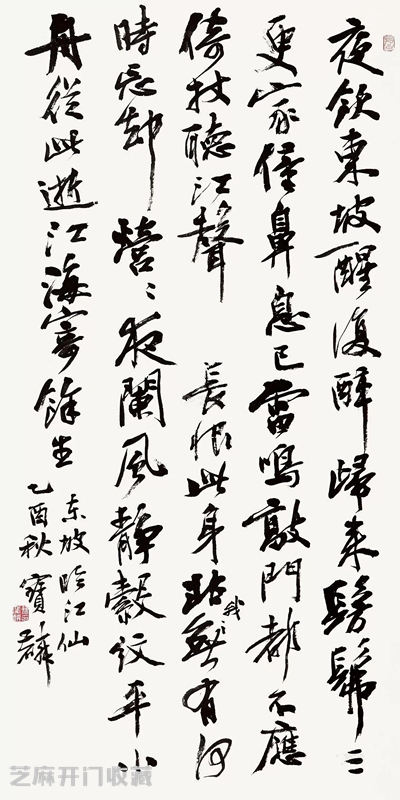 夜飲東坡醒復醉歸來髣髴三
更家僮鼻息已雷鳴敲門都不應
倚杖聽江聲 長恨此身無有何
時忘却營〻夜闌風靜縠紋平小
舟從此逝江海寄餘生
东坡临江仙
乙酉秋寶麟
芝麻开门收藏